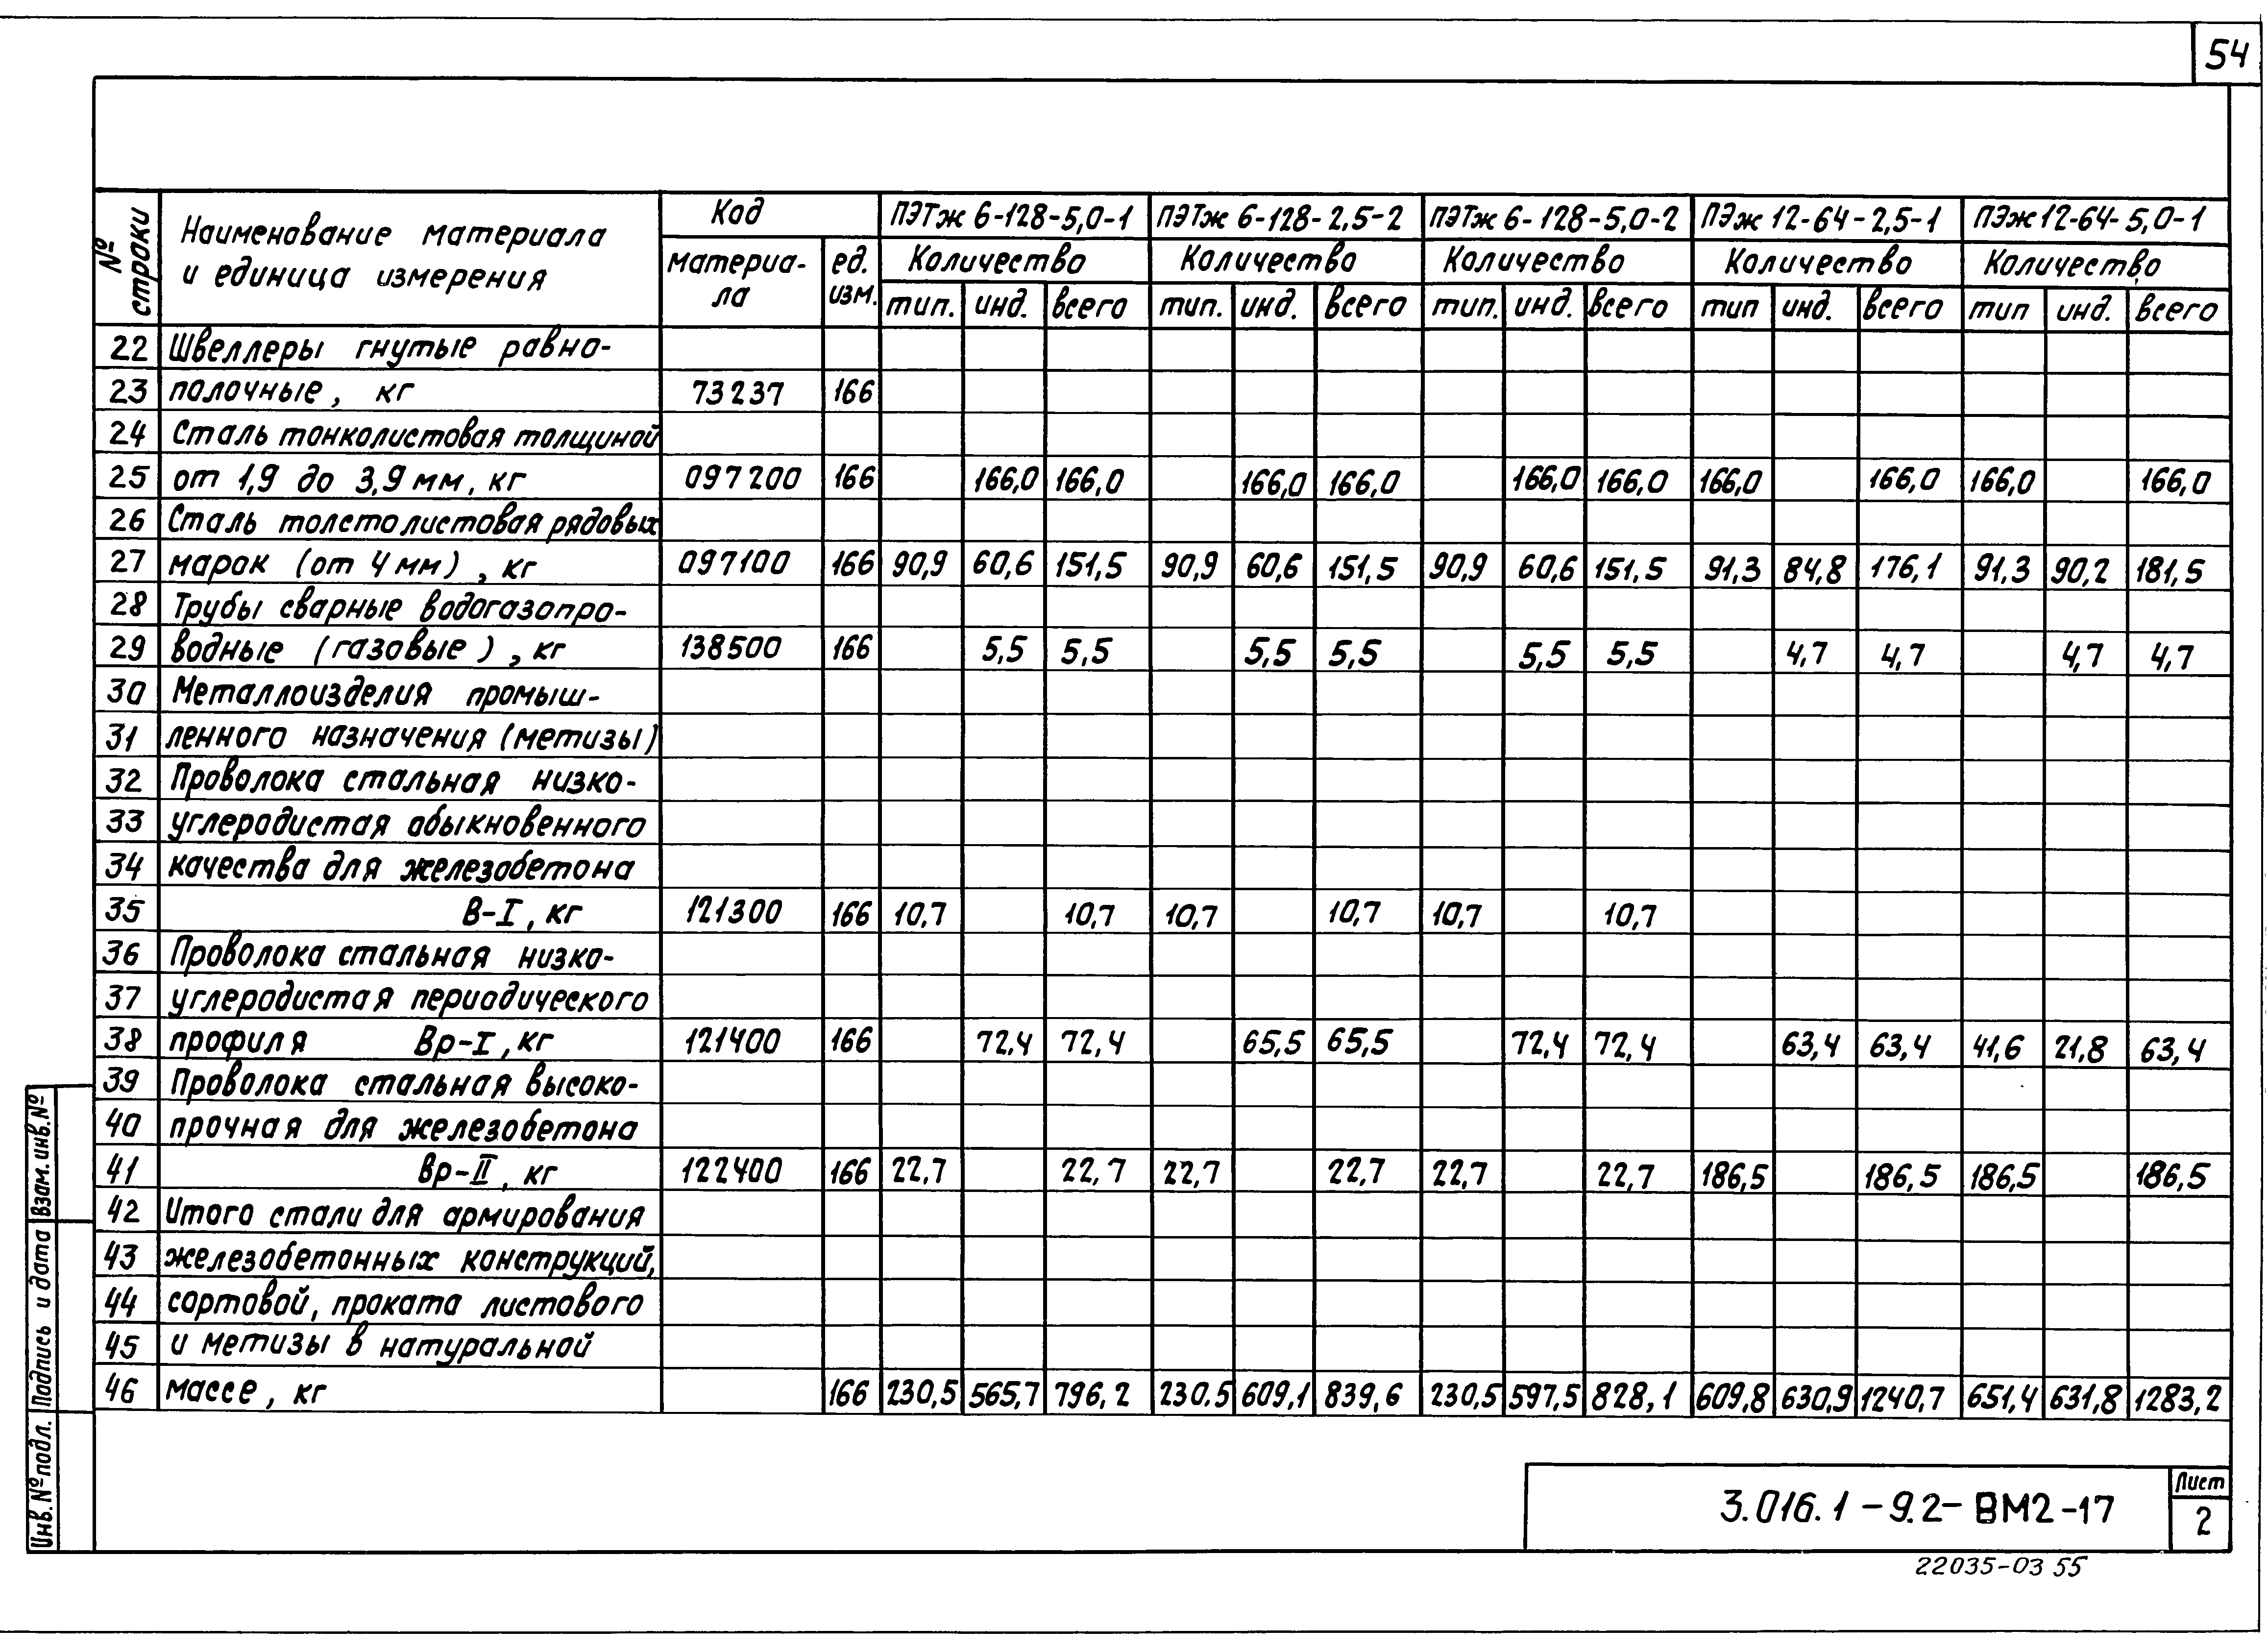 54
№ строки Наименование материала и единица измерения Код ПЭТж 6-128-5,0-1 ПЭТж 6-128-2,5-2 ПЭТж 6-128-5,0-2 ПЭж 12-64-2,5-1 ПЭж 12-64-5,0-1
материа-ла ед. изм. Количество Количество Количество Количество Количество
тип. инд. всего тип. инд. всего тип. инд. всего тип инд. всего тип инд. всего
22 Швеллеры гнутые равно-
23 полочные, кг 73237 166
24 Сталь тонколистовая толщиной
25 от 1,9 до 3,9 мм, кг 097200 166 166,0 166,0 166,0 166,0 166,0 166,0 166,0 166,0 166,0 166,0
26 Сталь толстолистовая рядовых
27 марок (от 4 мм), кг 097100 166 90,9 60,6 151,5 90,9 60,6 151,5 90,9 60,6 151,5 91,3 84,8 176,1 91,3 90,2 181,5
28 Трубы сварные водогазопро-
29 водные (газовые), кг 138500 166 5,5 5,5 5,5 5,5 5,5 5,5 4,7 4,7 4,7 4,7
30 Металлоизделия промыш-
31 ленного назначения (метизы)
32 Проволока стальная низко-
33 углеродистая обыкновенного
34 качества для железобетона
35 В-I, кг 121300 166 10,7 10,7 10,7 10,7 10,7 10,7
36 Проволока стальная низко-
37 углеродистая периодического
38 профиля Вр-I, кг 121400 166 72,4 72,4 65,5 65,5 72,4 72,4 63,4 63,4 41,6 21,8 63,4
39 Проволока стальная высоко-
40 прочная для железобетона
41 Вр-II, кг 122400 166 22,7 22,7 22,7 22,7 22,7 22,7 186,5 186,5 186,5 186,5
42 Итого стали для армирования
43 железобетонных конструкций,
44 сортовой, проката листового
45 и метизы в натуральной
46 массе, кг 166 230,5 565,7 796,2 230,5 609,1 839,6 230,5 597,5 828,1 609,8 630,9 1240,7 651,4 631,8 1283,2
Инв. № подл. Подпись и дата Взам. инв. №
3.016.1-9.2-ВМ2-17
Лист
2
22035-03 55